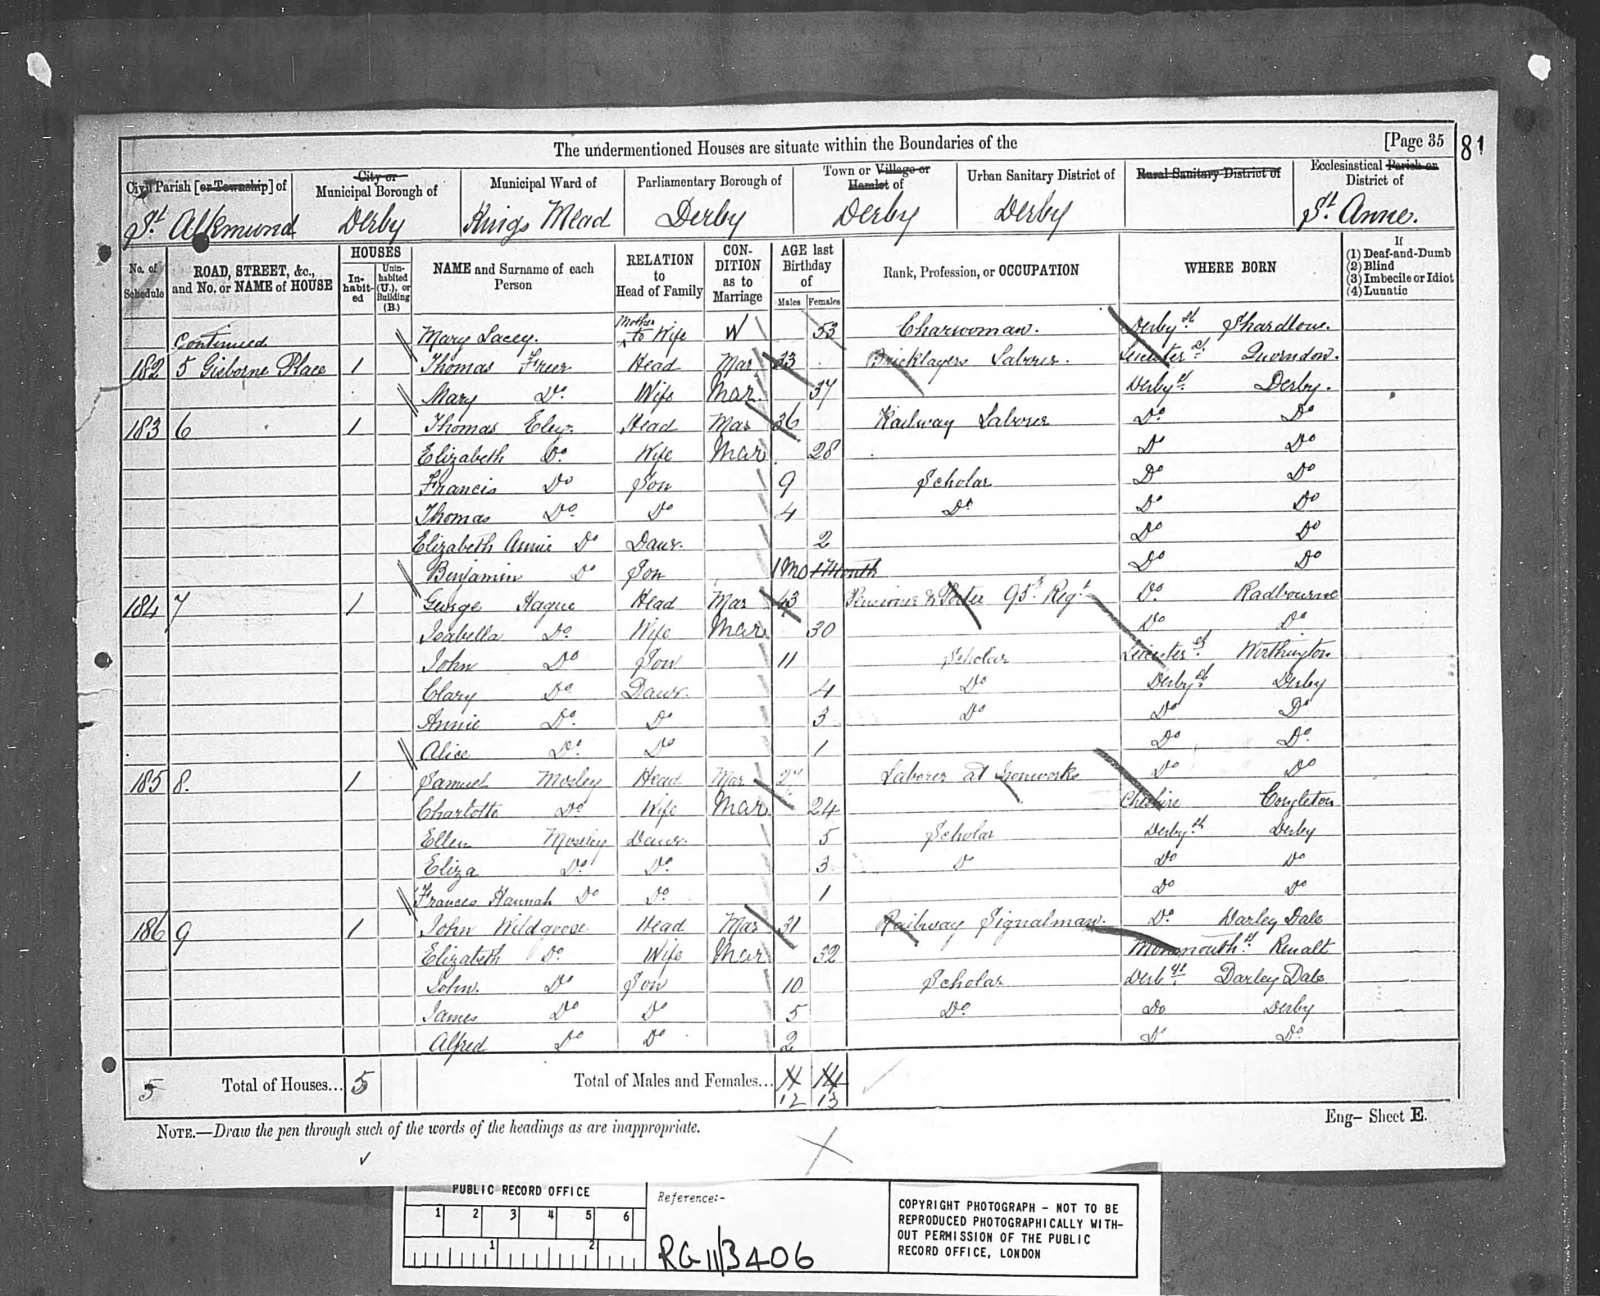 The undermentioned Houses are situate within the Boundaries of the [Page 35 81
Civil Parish [or Township] of City or Municipal Borough of Municipal Ward of Parliamentary Borough of Town or Village or Hamlet of Urban Sanitary District of Rural Sanitary District of Ecclesiastical Parish or District of
St. Alkmund Derby Kings Mead Derby Derby Derby St. Anne.
No. of Schedule ROAD, STREET, &c., and No. or NAME of HOUSE HOUSES Inhabited Uninhabited (U.), or Building (B.) NAME and Surname of each Person RELATION to Head of Family CONDITION as to Marriage AGE last Birthday of Males Females Rank, Profession, or OCCUPATION WHERE BORN If (1) Deaf-and-Dumb (2) Blind (3) Imbecile or Idiot (4) Lunatic
Continued Mary Lacey. Mother to Wife W 53 Charwoman. Derbysh Shardlow.
182 5 Gisborne Place 1 Thomas Freer Head Mar 33 Bricklayers Laborer. Leicestersh Quorndon.
Mary Do. Wife Mar. 37 Derbysh Derby.
183 6 1 Thomas Head Mar 36 Railway Laborer Do Do
Elizabeth Do. Wife Mar 28 D Do
Francis Do Son 9 Scholar Do Do
Thomas Do. Do 4 Do Do Do
Elizabeth Annie Do Daur. 2 Do Do
Benjamin Do Son 1 Mo 1 Month Do Do
184 7 1 George Hague Head Mar 43 Pensioner & Porter 95th Regt Do. Radbourne
Isabella Do. Wife Mar. 30 Do Do
John Do Son 11 Scholar Leicestersh Worthington
Clary Do Daur. 4 Do Derbysh Derby
Annie Do. Do 3 Do Do Do
Alice Do. Do 1 Do Do.
185 8. 1 Samuel Mosley Head Mar 27 Laborer at Ironworks Do Do
Charlotte Do. Wife Mar 24 Cheshire Congleton
Ellen Moseley Daur. 5 Scholar Derbysh Derby
Eliza Do. Do. 3 D Do Do
Frances Hannah Do Do. 1 Do Do
186 9 1 John Wildgoose Head Mar 31 Railway Signalman. Do. Darley Dale
Elizabeth Do Wife Mar 32 Monmouthsh
John. Do Son 10 Scholar Derbysh Darley Dale
James Do Do 5 Do. Do Derby
Alfred Do Do 2 Do Do.
5 Total of Houses... 5 Total of Males and Females... 11 14
12 13
NOTE.—Draw the pen through such of the words of the headings as are inappropriate. Eng– Sheet E.
PUBLIC RECORD OFFICE
1 2 3 4 5 6
1 2
Reference:-
RG 11/3406
COPYRIGHT PHOTOGRAPH – NOT TO BE
REPRODUCED PHOTOGRAPHICALLY WITH-
OUT PERMISSION OF THE PUBLIC
RECORD OFFICE, LONDON